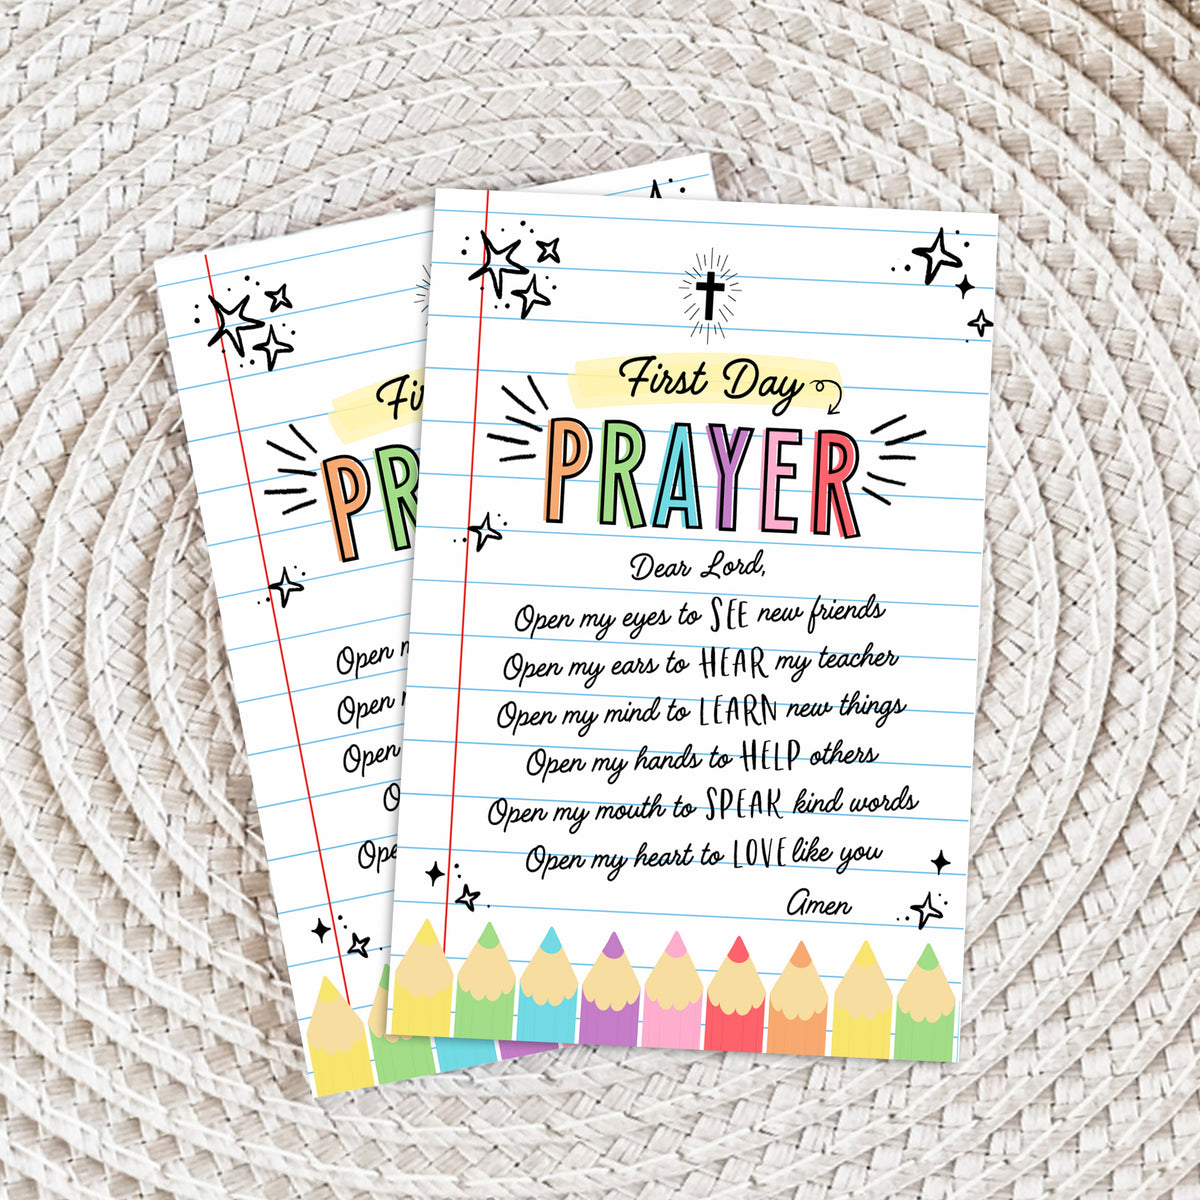 First Day
PRAYER
Dear Lord,
Open my eyes to SEE new friends
Open my ears to HEAR my teacher
Open my mind to LEARN new things
Open my hands to HELP others
Open my mouth to SPEAK kind words
Open my heart to LOVE like you
Amen
Fi
PR
Open
Open
Open
Ope